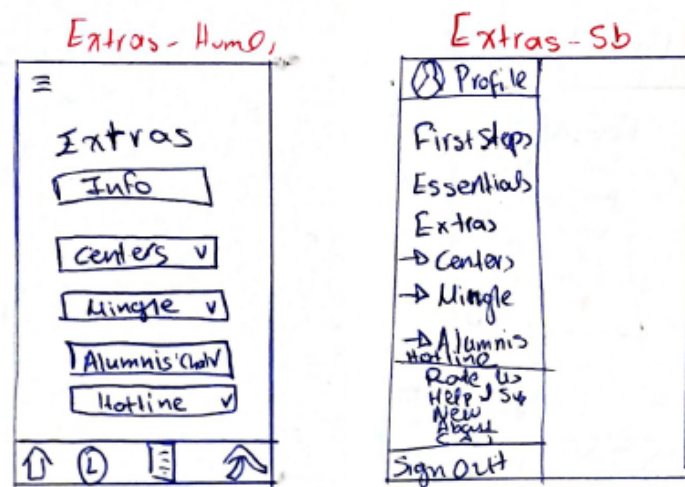 Extras - Home
Extras - Sb
Extras
Info
Centers
Mingle
Alumnis' Chat
Hotline
L
Profile
First Steps
Essentials
Extras
Centers
Mingle
Alumnis
Hotline
Rate Us
Help & Sup
New
About
Sign Out